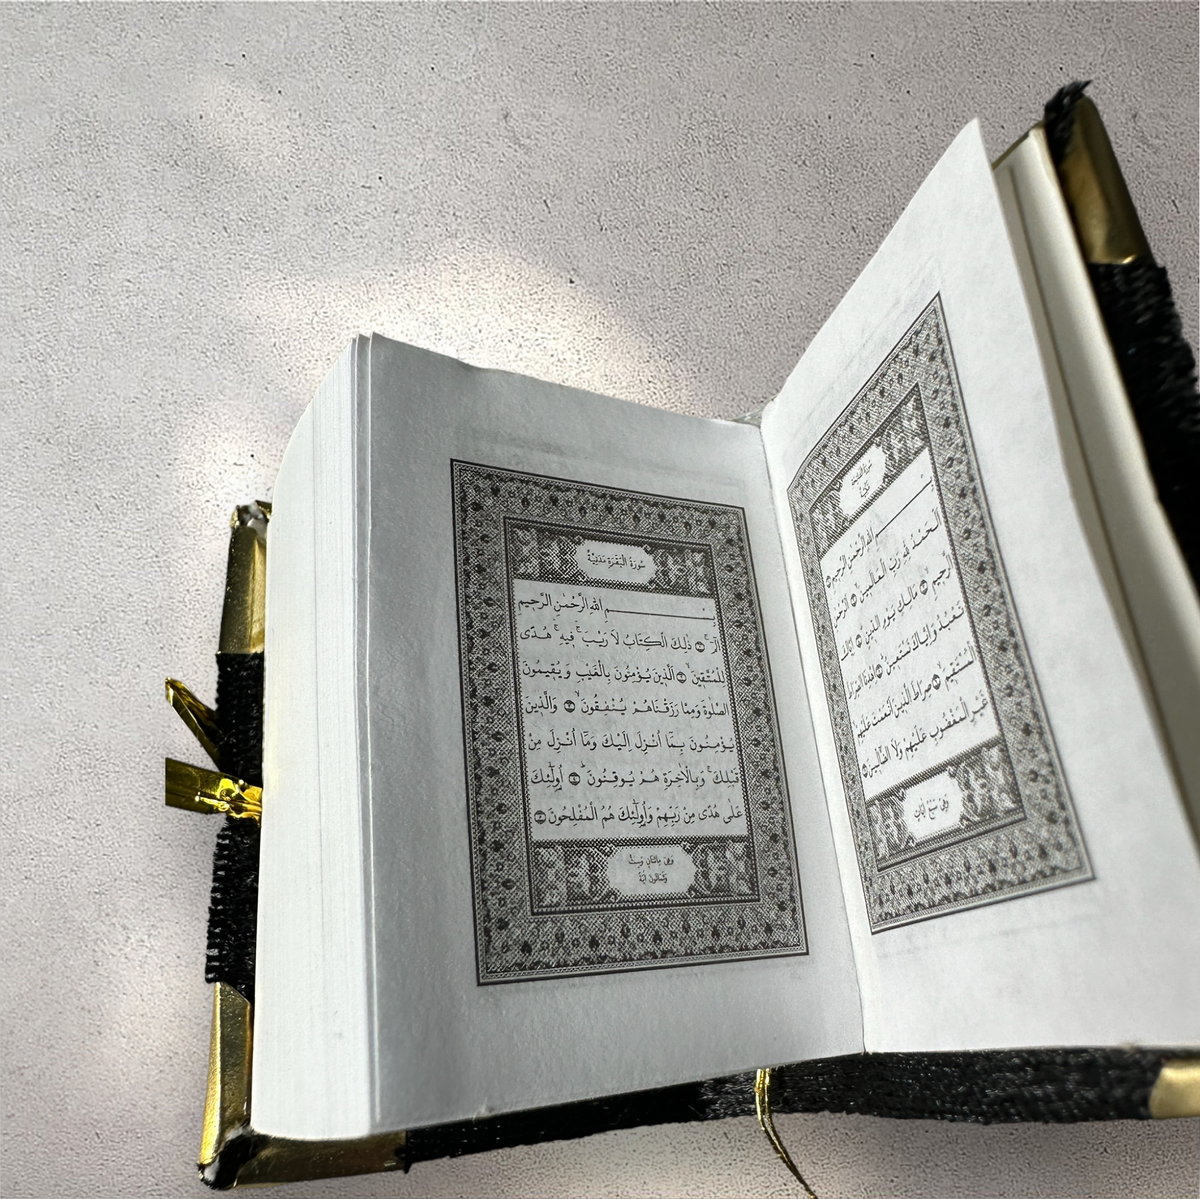 سُورَةُ الْفَاتِحَةِ
مَكِّيَّةٌ
بِسْمِ اللهِ الرَّحْمٰنِ الرَّحِيمِ
اَلْحَمْدُ لِلّٰهِ رَبِّ الْعَالَمِينَ اَلرَّحْمٰنِ
الرَّحِيمِ مَالِكِ يَوْمِ الدِّينِ اِيَّاكَ
نَعْبُدُ وَاِيَّاكَ نَسْتَعِينُ اِهْدِنَا الصِّرَاطَ
الْمُسْتَقِيمَ صِرَاطَ الَّذِينَ اَنْعَمْتَ عَلَيْهِمْ
غَيْرِ الْمَغْضُوبِ عَلَيْهِمْ وَلَا الضَّالِّينَ
وَهِيَ سَبْعُ اٰيَاتٍ
سُورَةُ الْبَقَرَةِ مَدَنِيَّةٌ
بِسْمِ اللهِ الرَّحْمٰنِ الرَّحِيمِ
الٓمٓ ۚ ذٰلِكَ الْكِتَابُ لَا رَيْبَ ۚ فِيهِ ۚ هُدًى
لِلْمُتَّقِينَ ۙ اَلَّذِينَ يُؤْمِنُونَ بِالْغَيْبِ وَيُقِيمُونَ
الصَّلٰوةَ وَمِمَّا رَزَقْنَاهُمْ يُنْفِقُونَ ۙ وَالَّذِينَ
يُؤْمِنُونَ بِمَٓا اُنْزِلَ اِلَيْكَ وَمَٓا اُنْزِلَ مِنْ
قَبْلِكَ ۚ وَبِالْاٰخِرَةِ هُمْ يُوقِنُونَ ۜ اُولٰٓئِكَ
عَلٰى هُدًى مِنْ رَبِّهِمْ وَاُولٰٓئِكَ هُمُ الْمُفْلِحُونَ
وَهِيَ مِائَتَانِ وَسِتٌّ
وَثَمَانُونَ اٰيَةً